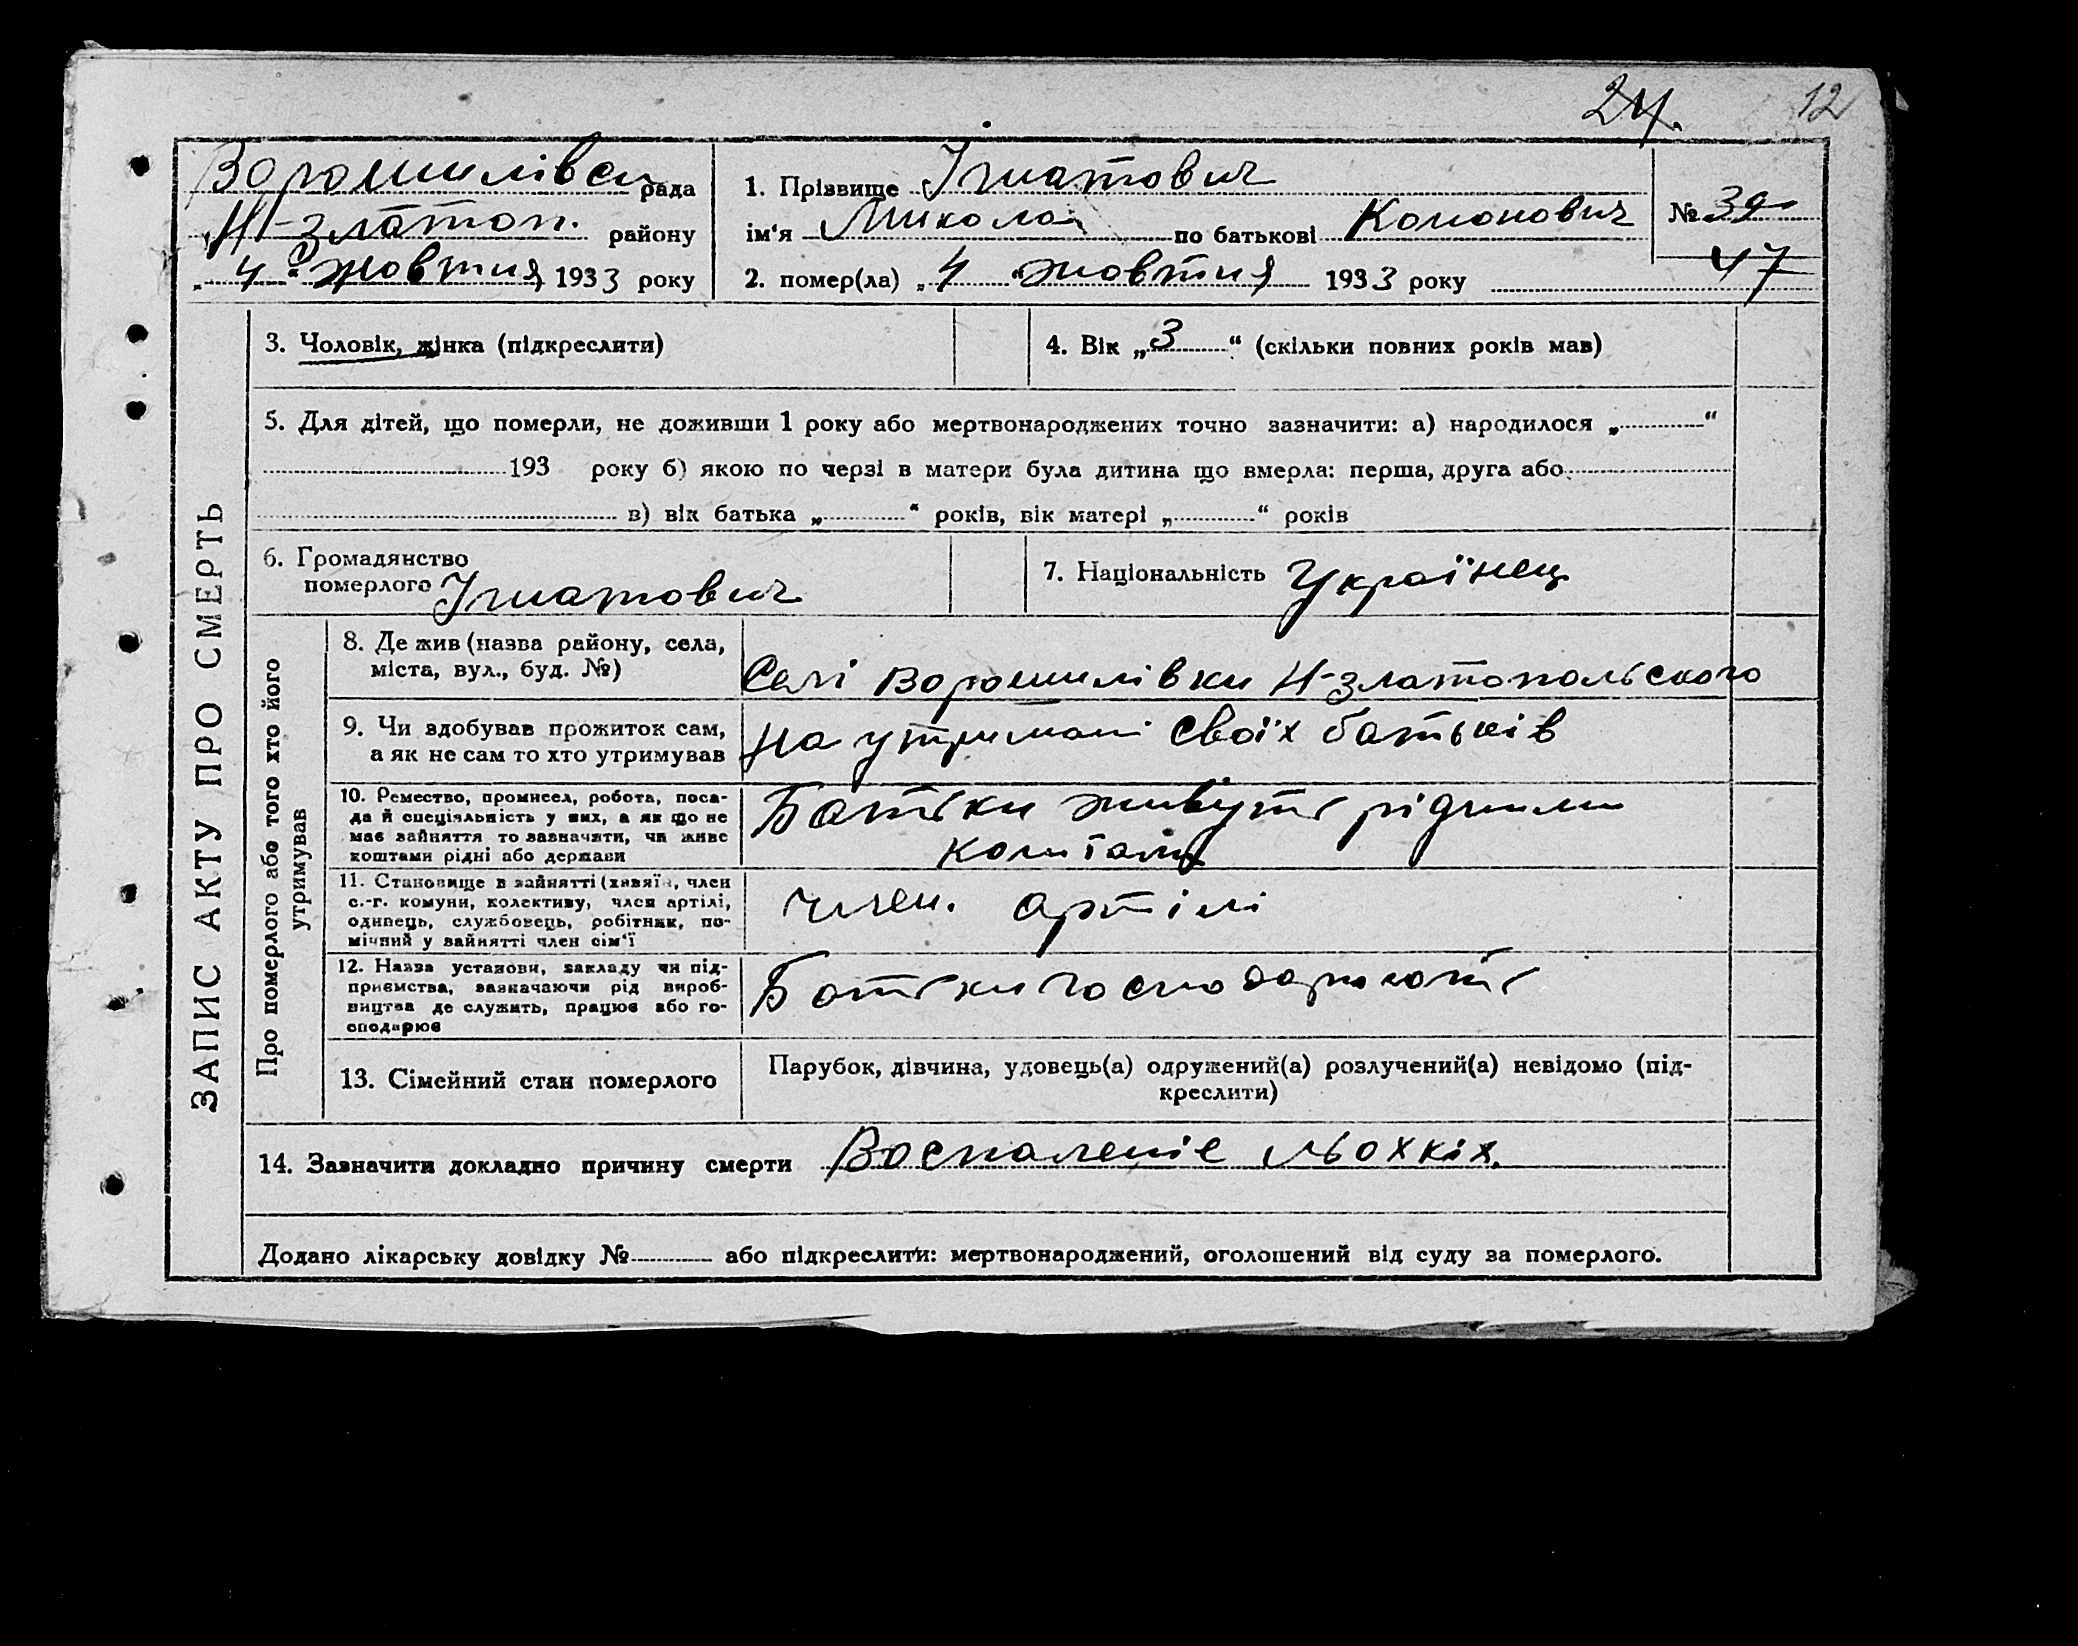 24. 12
Ворошилівск рада
Н-златоп. району
„ 4 “ жовтня 1933 року
1. Прізвище Ігнатович
ім'я Микола по батькові Кононович
2. помер(ла) „ 4 “ жовтня 1933 року
№ 39
47
ЗАПИС АКТУ ПРО СМЕРТЬ
3. Чоловік, жінка (підкреслити)
4. Вік „ 3 “ (скільки повних років мав)
5. Для дітей, що померли, не доживши 1 року або мертвонароджених точно зазначити: а) народилося „ “
193 року б) якою по черзі в матери була дитина що вмерла: перша, друга або
в) вік батька „ “ років, вік матері „ “ років
6. Громадянство
померлого Ігнатович
7. Національність Українец
Про померлого або того хто його
утримував
8. Де жив (назва району, села,
міста, вул., буд. №)
Селі Ворошилівки Н-златопольского
9. Чи здобував прожиток сам,
а як не сам то хто утримував
На утримані своїх батьків
10. Ремество, промисел, робота, поса-
да й спеціяльність у них, а як що не
має зайняття то зазначити, чи живе
коштами рідні або держави
Батьки живуть рідними
коштами
11. Становище в зайнятті (хазяїн, член
с.-г. комуни, колективу, член артілі,
одинець, службовець, робітник, по-
мічний у зайнятті член сім'ї
член. артілі
12. Назва установи, закладу чи під-
приємства, зазначаючи рід вироб-
ництва де служить, працює або го-
сподарює
Батьки господарюють
13. Сімейний стан померлого
Парубок, дівчина, удовець(а) одружений(а) розлучений(а) невідомо (під-
креслити)
14. Зазначити докладно причину смерти Воспаленіє льохкіх.
Додано лікарську довідку № або підкреслити: мертвонароджений, оголошений від суду за померлого.